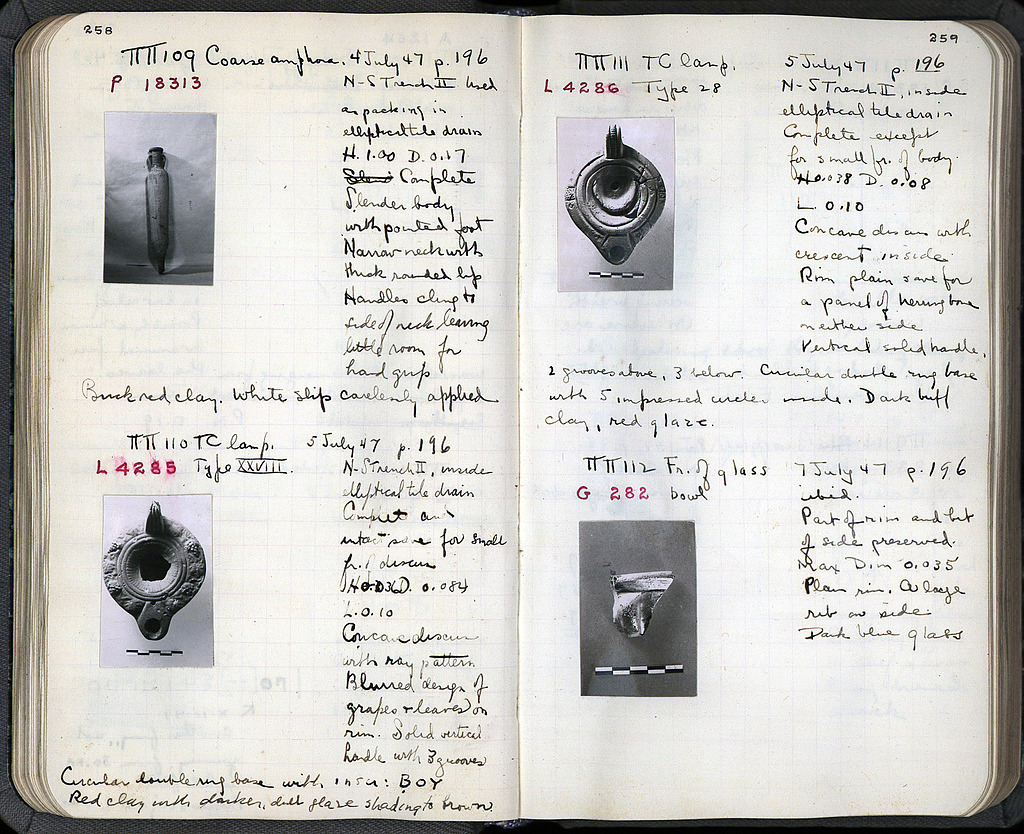 258
ΠΠ109 Coarse amphora. 4 July 47 p. 196
P 18313
N-S Trench II Used
as packing in
elliptical tile drain
H. 1.00 D. 0.17
Complete
Slender body
with pointed foot
Narrow neck with
thick rounded lip
Handles cling to
side of neck leaving
little room for
hand grip
Buck red clay. White slip carelessly applied
ΠΠ110 TC lamp. 5 July 47 p. 196
L 4285 Type XXVIII.
N-S Trench II, inside
elliptical tile drain
Complete and
intact save for small
fr. of discus
H 0.036 D. 0.084
L. 0.10
Concave discus
with ray pattern
Blurred design of
grapes + leaves on
rim. Solid vertical
handle with 3 grooves
Circular double ring base with inscr: BOY
Red clay with darker, dull glaze shading to brown
259
ΠΠ111 TC lamp. 5 July 47 p. 196
L 4286 Type 28
N-S Trench II, inside
elliptical tile drain
Complete except
for small fr. of body.
H 0.038 D. 0.08
L. 0.10
Concave discus with
crescent inside.
Rim plain save for
a panel of herringbone
on either side
Vertical solid handle,
2 grooves above, 3 below. Circular double ring base
with 5 impressed circles inside. Dark buff
clay, red glaze.
ΠΠ112 Fr. of glass 7 July 47 p. 196
G 282 bowl
ibid.
Part of rim and bit
of side preserved.
Max Dim 0.035
Plain rim. A large
rib on side.
Dark blue glass